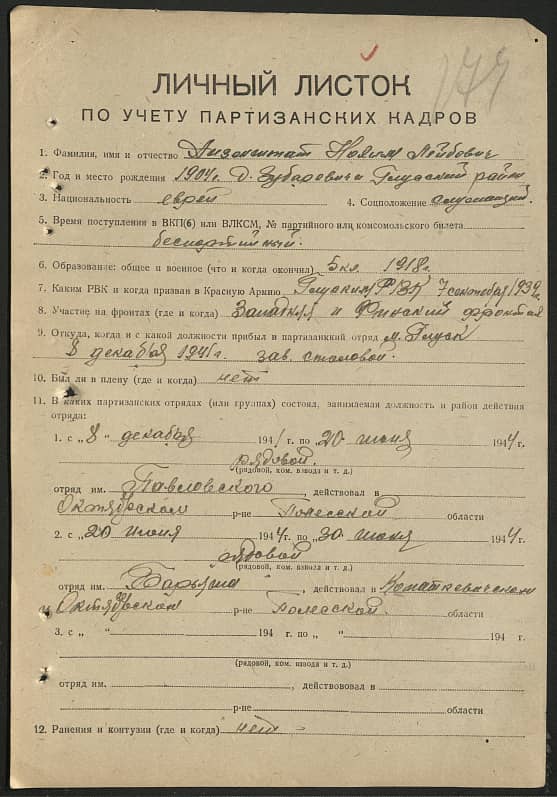 174
ЛИЧНЫЙ ЛИСТОК
ПО УЧЕТУ ПАРТИЗАНСКИХ КАДРОВ
1. Фамилия, имя и отчество Айзенштат Лейбович
2. Год и место рождения 1904г. д. Зубаревичи Глусский район
3. Национальность еврей 4. Соцположение служащий.
5. Время поступления в ВКП(б) или ВЛКСМ, № партийного или комсомольского билета
беспартийный.
6. Образование: общее и военное (что и когда окончил) 5 кл. 1918г.
7. Каким РВК и когда призван в Красную Армию Глуским РВК 7 сентября 1939г.
8. Участие на фронтах (где и когда) Западный и Финский фронтах
9. Откуда, когда и с какой должности прибыл в партизанский отряд м. Глуск
8 декабря 1941г. зав. столовой.
10. Был ли в плену (где и когда) нет
11. В каких партизанских отрядах (или группах) состоял, занимаемая должность и район действия
отряда:
1. с „8„ декабря 1941 г. по 20 июня 1944 г.
рядовой.
(рядовой, ком. взвода и т. д.)
отряд им. Павловского, действовал в
Октябрьском р-не Полесской области
2. с „20 июня 1944 г. по „30 июня 1944 г.
рядовой
(рядовой, ком. взвода и т. д.)
отряд им. , действовал в Копаткевичском
и Октябрьском р-не Полесской. области
3. с „ „ 194 г. по „ “ 194 г.
(рядовой, ком. взвода и т. д.)
отряд им. , действовал в
р-не области
12. Ранения и контузии (где и когда) нет